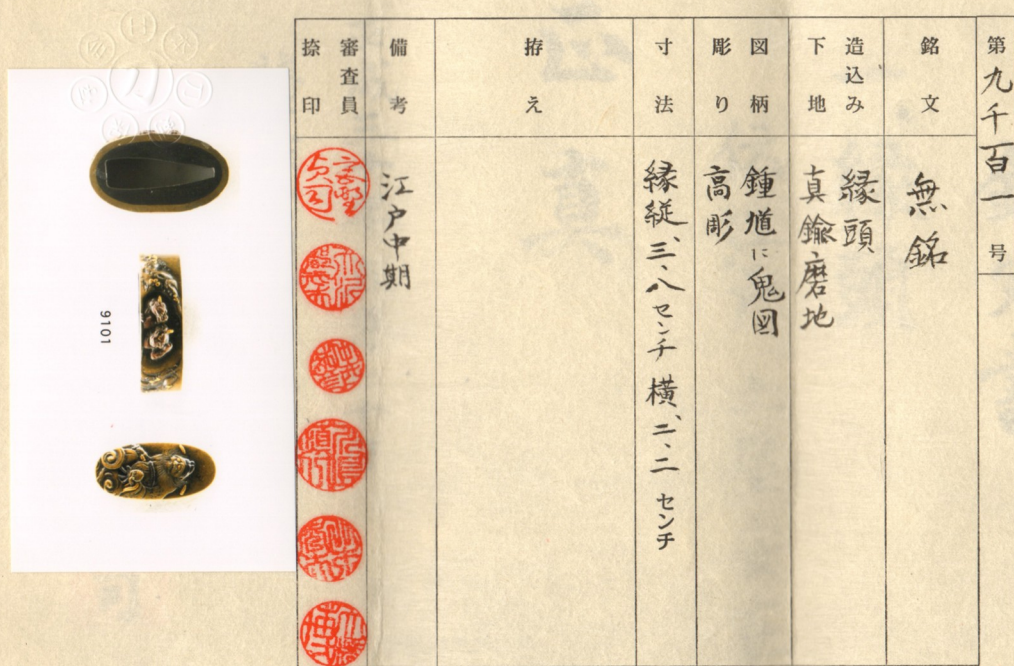 第九千百一号
銘文
無銘
造込み
下地
縁頭
真鍮磨地
図柄
彫り
鍾馗に鬼図
高彫
寸法
縁縦、三、八センチ 横、二、二センチ
拵え
備考
江戸中期
審査員
捺印
9101